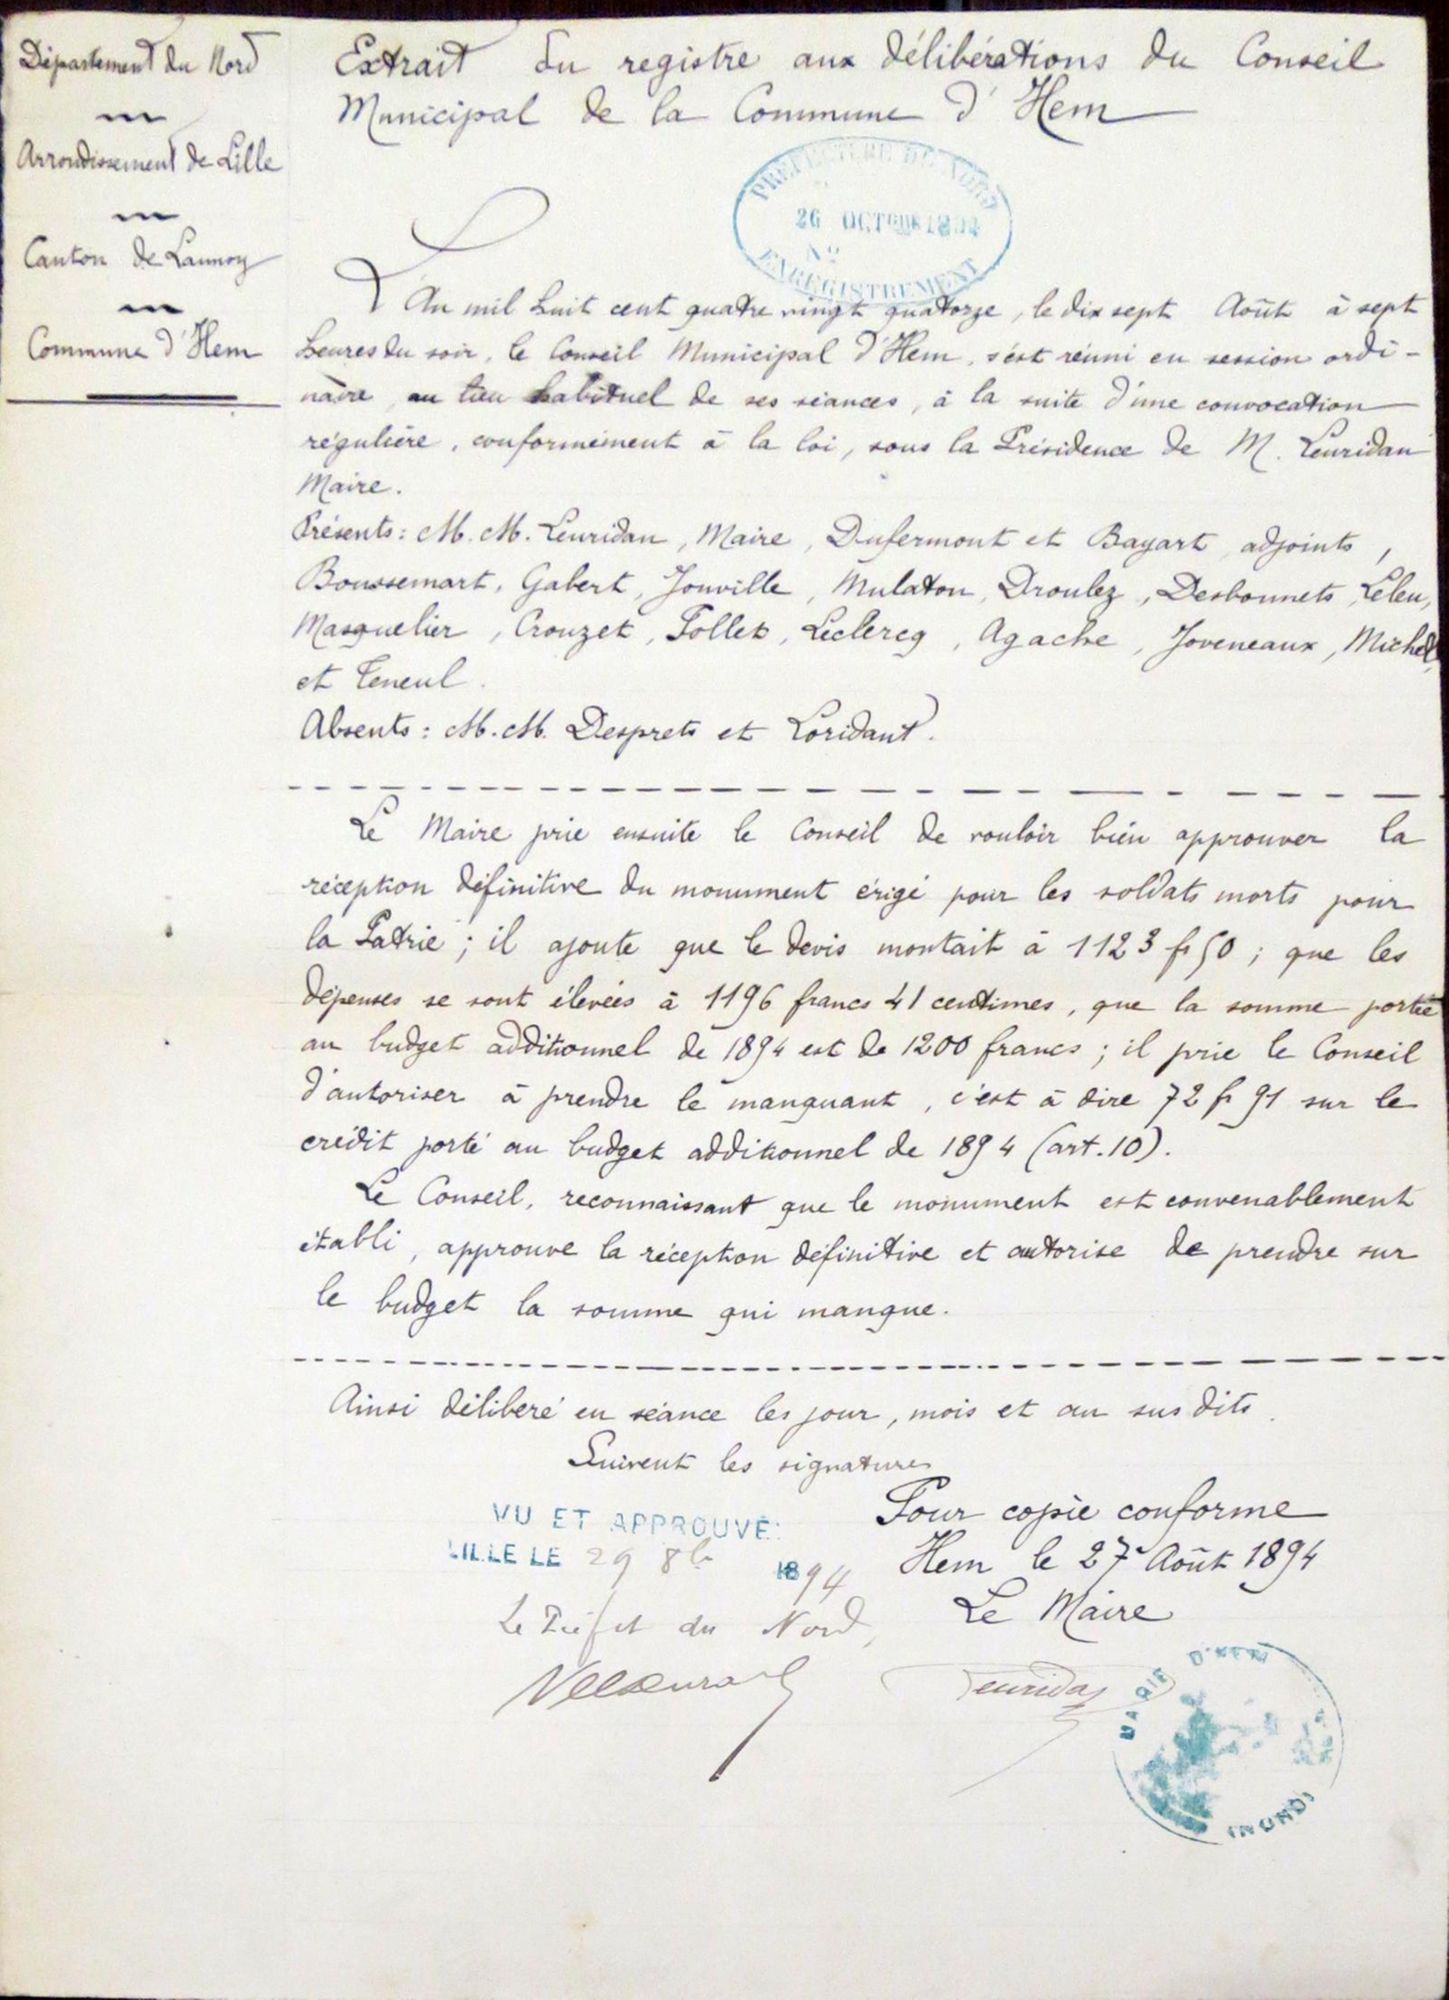 Département du Nord
Arrondissement de Lille
Canton de Lannoy
Commune d'Hem
Extrait du registre aux délibérations du Conseil
Municipal de la Commune d'Hem
PRÉFECTURE DU NORD
26 OCTOBRE 1894
No
ENREGISTREMENT
L'An mil huit cent quatre vingt quatorze, le dix sept Août à sept
heures du soir, le Conseil Municipal d'Hem, s'est réuni en session ordi-
naire, au lieu habituel de ses séances, à la suite d'une convocation
régulière, conformément à la loi, sous la Présidence de M. Leuridan
Maire.
Présents: M. M. Leuridan, Maire, Dufermont et Bayart, adjoints,
Boussemart, Gabert, Jonville, Mulaton, Droulez, Desbonnets, Leleu,
Masquelier, Crouzet, Tollet, Leclercq, Agache, Joveneaux, Michel,
et Teneul.
Absents: M. M. Desprets et Loridant.
Le Maire prie ensuite le Conseil de vouloir bien approuver la
réception définitive du monument érigé pour les soldats morts pour
la Patrie; il ajoute que le devis montait à 1123 fr 50; que les
dépenses se sont élevées à 1196 francs 41 centimes, que la somme portée
au budget additionnel de 1894 est de 1200 francs; il prie le Conseil
d'autoriser à prendre le manquant, c'est à dire 72 fr 91 sur le
crédit porté au budget additionnel de 1894 (art. 10).
Le Conseil, reconnaissant que le monument est convenablement
établi, approuve la réception définitive et autorise de prendre sur
le budget la somme qui manque.
Ainsi délibéré en séance les jour, mois et an sus dits.
Suivent les signatures
Pour copie conforme
Hem le 27 Août 1894
Le Maire
VU ET APPROUVÉ:
LILLE LE 29 8bre 1894
Le Préfet du Nord,
Leuridan
MAIRIE D'HEM
(NORD)